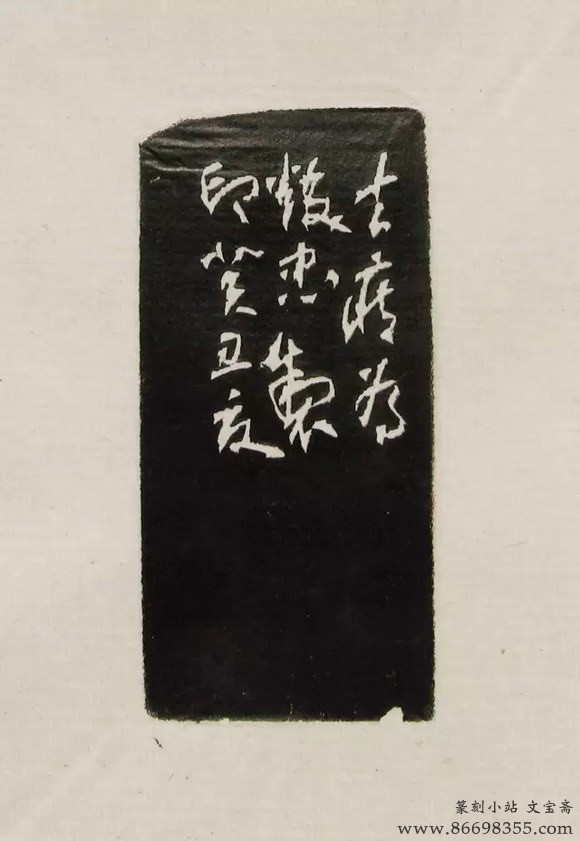 去疾为
忠製
印癸丑夏
篆刻小站 文宝斋
www.86698355.com